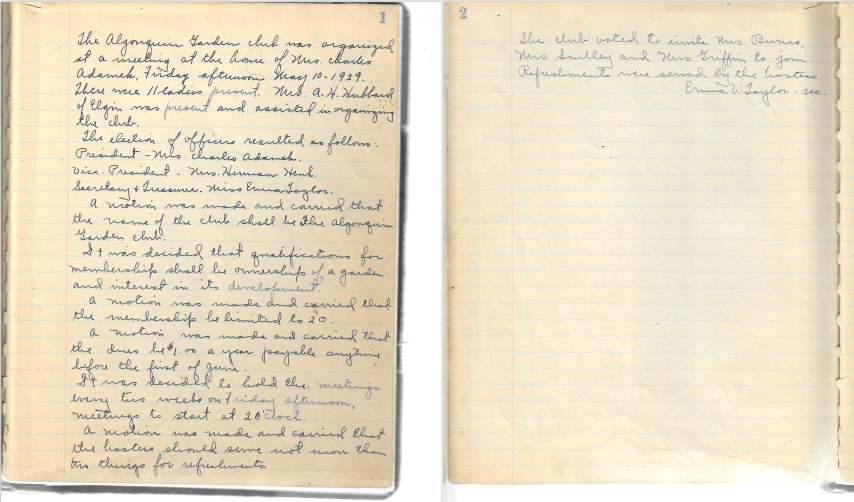 1
The Algonquin Garden club was organized
at a meeting at the home of Mrs. Charles
Adamek, Friday afternoon May 10-1929.
There were 11 ladies present. Mrs. A. H. Hubbard
of Elgin was present and assisted in organizing
the club.
The election of officers resulted as follows:
President - Mrs. Charles Adamek.
Vice. President - Mrs. Herman Henk.
Secretary & Treasurer. Miss Erma Taylor.
A motion was made and carried that
the name of the club shall be The Algonquin
Garden club.
It was decided that qualifications for
membership shall be ownership of a garden
and interest in its development.
A motion was made and carried that
the membership be limited to 20.
A motion was made and carried that
the dues be $1.00 a year payable anytime
before the first of June.
It was decided to hold the meetings
every two weeks on Friday afternoon,
meetings to start at 2 o'clock.
A motion was made and carried that
the hostess should serve not more than
two things for refreshments.
2
The club voted to invite Mrs. Burns,
Mrs. Sculley and Mrs. Griffin to join.
Refreshments were served by the hostess
Erma V. Taylor - sec.